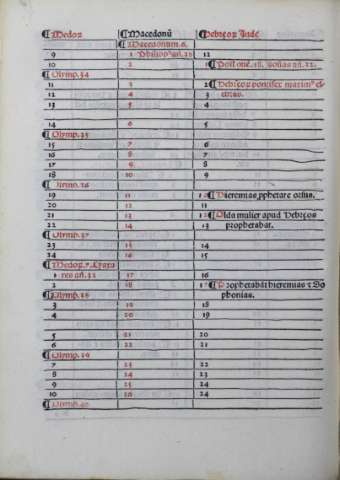 Medorum Macedonū Hebreorum Iude
Macedonum.6.
9 1 Philippus añ.38 12
10 2 1 Post onē.18. Iosias añ.32.
Olymp.34
11 3 2 Hebreorum pontifex maximus el
12 4 3 chias.
13 5 4
14 6 5
Olymp.35
15 7 6
16 8 7
17 9 8
18 10 9
Olymp.36
19 11 10 Hieremias prophetare orsus.
20 12 11
21 13 12 Olda mulier apud Hebreos
22 14 13 prophetabat.
Olymp.37
23 15 14
24 16 15
Medorum.7.
1 res añ.32 17 16
2 18 17 Prophetabāt hieremias & So
Olymp.38 phonias.
3 19 18
4 20 19
5 21 20
6 22 21
Olymp.39
7 23 22
8 24 23
9 25 24
10 26 24
Olymp.40